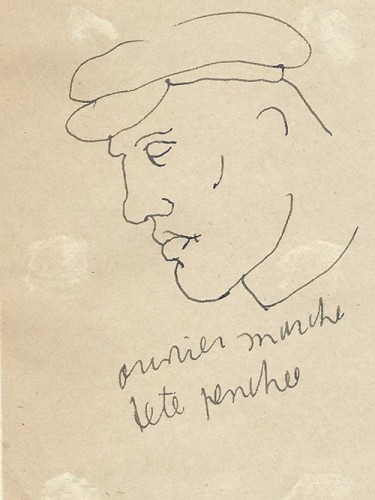 ouvrier marche
tete penchee